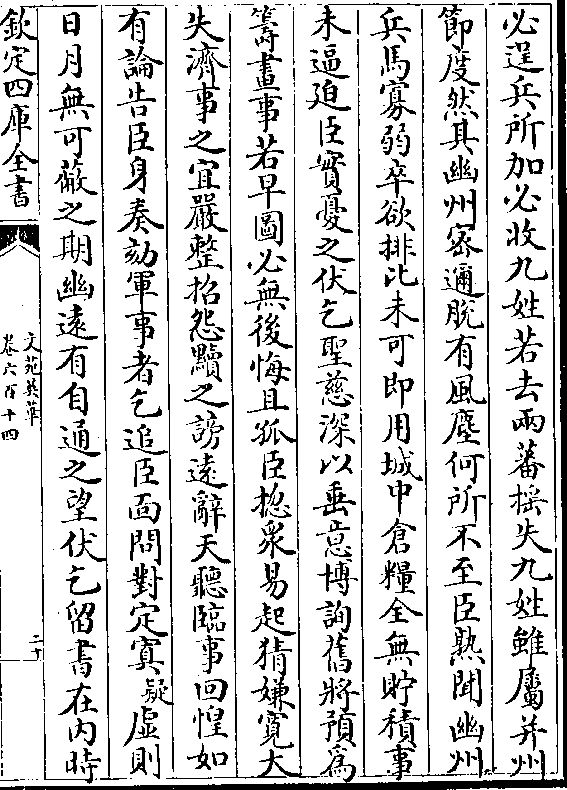 必逞兵所加必收九姓若去兩蕃揺失九姓雖屬并州
節度然其幽州宻邇脱有風塵何所不至臣熟聞幽州
兵馬寡弱卒欲排比未可即用城中倉糧全無貯積事
未逼廹臣實憂之伏乞聖慈深以垂意博詢舊將預為
籌畫事若早圖必無後悔且孤臣揔衆易起猜嫌寛大
失濟事之宜嚴整招怨黷之謗逺辭天聽臨事回惶如
有論告臣身奏劾軍事者乞追臣面問對定寘疑虛則
日月無可蔽之期幽逺有自通之望伏乞留書在内時
欽定四庫全書
文苑英華
卷六百十四
二十